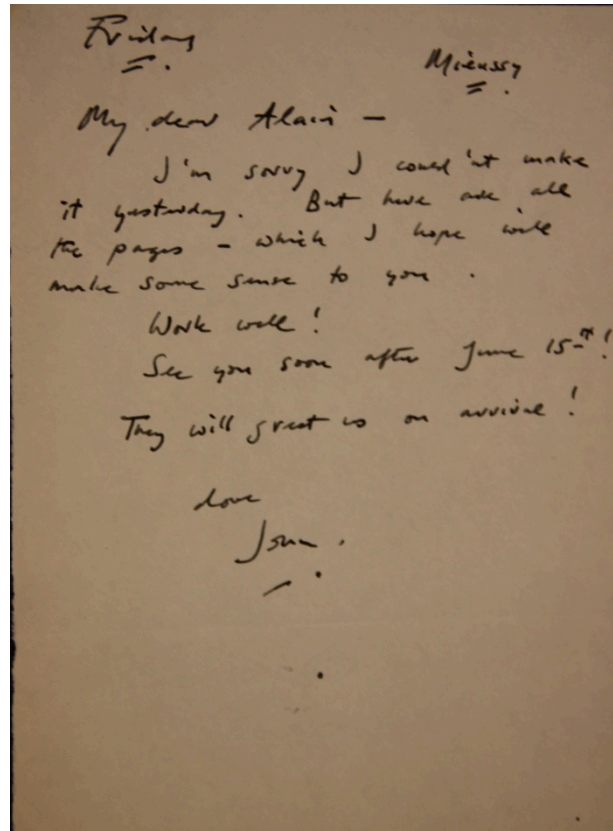 Friday
Mieussy
My dear Alain –
I'm sorry I could'nt make
it yesterday. But here are all
the pages – which I hope will
make some sense to you.
Work well!
See you soon after June 15th!
They will greet us on arrival!
love
John.